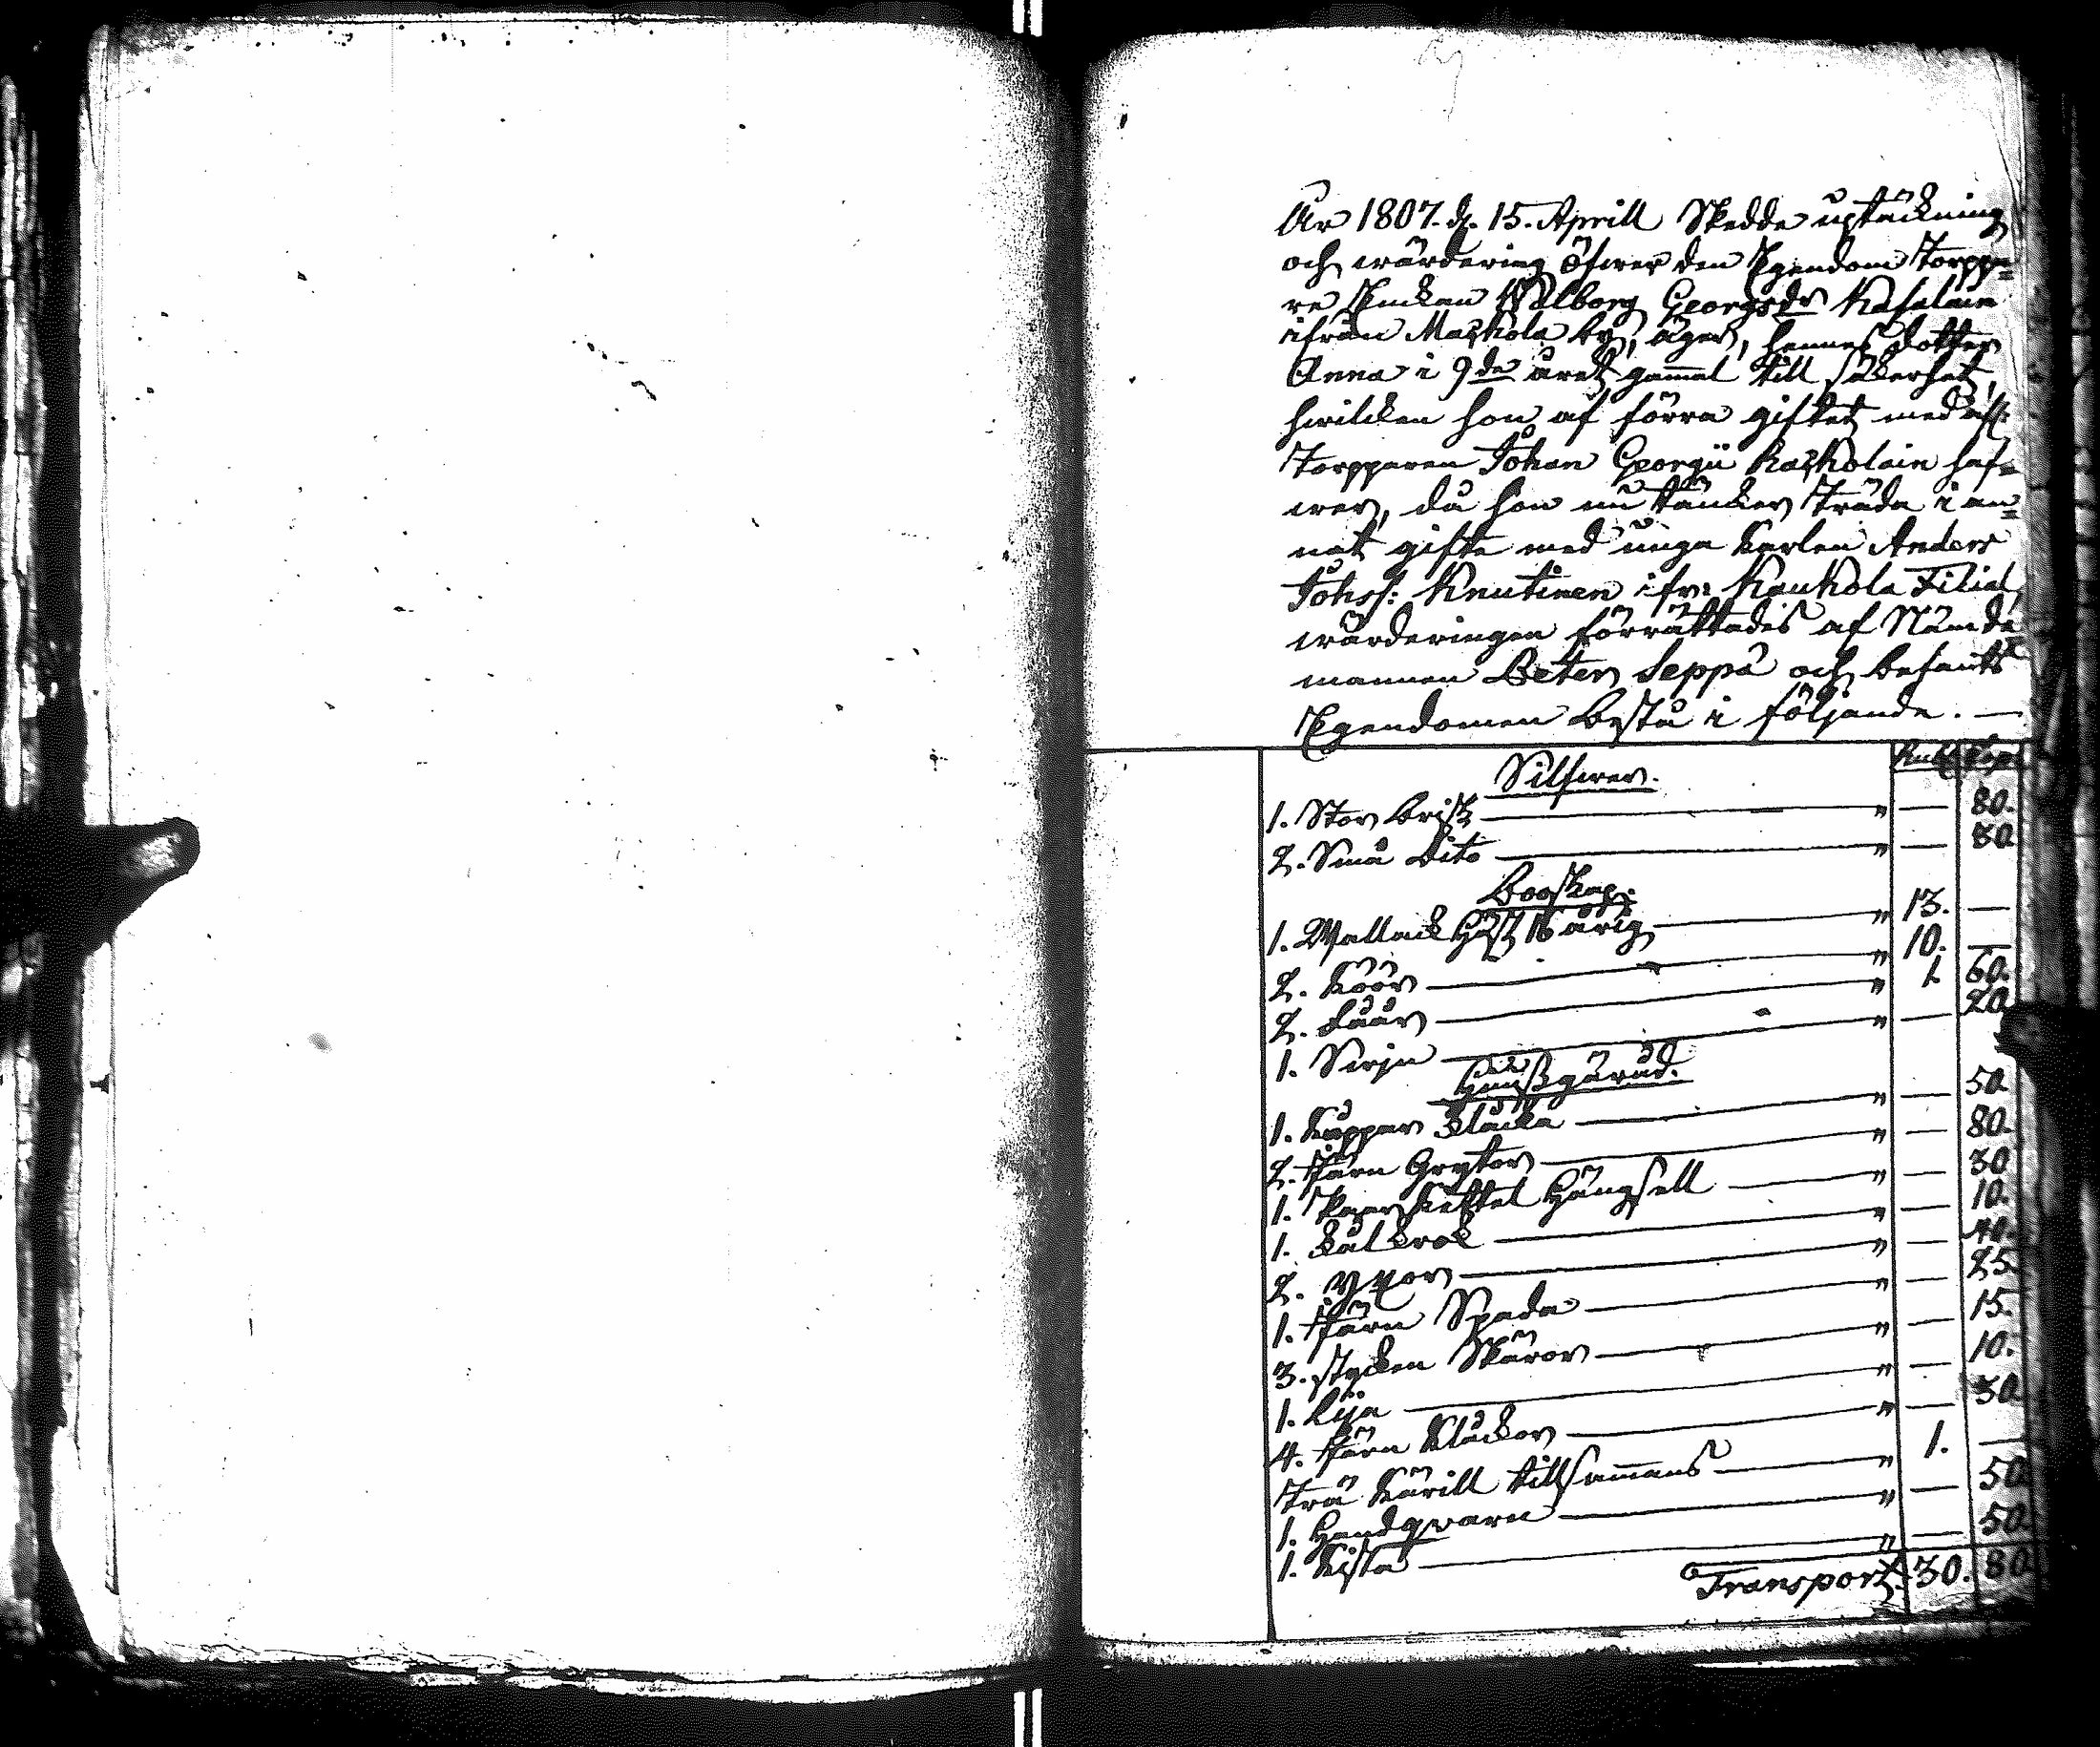 År 1807. d. 15. Aprill Skedde uptäckning
och wärdering öfwer den Egendom Torppa=
re Enckan Walborg Georgsdr Kafalain
ifrån Maskola by, äger, hennes dotter
Anna i 9de året gamal till säkerhet,
hwilcken hon af förra giftet med afl:
Torpparen Johan Georgii Kaskolain haf=
wer, då hon nu täncker träda i an=
nat gifte med unga karlen Anders
Johss: Knutinen ifr: Kaukola Filial,
wärderingen förrättades af Nämde
mannen Peter Seppä och befants
Egendomen bestå i följande. —
Rubl Kop:
Silfwer.
1. Stor Brisk — " — 80.
2. Små Dito — " — 80
Booskap.
1. Wallack Häst 16 årig — " 13. —
2. Köör — " 10. —
2. Fåår — " 1 60.
1. Swjn — " — 20
Hußgåråd.
1. Kåppar Klåcka — " — 50
2. Järn Grytor — " — 80.
1. Hängsell — " — 30
1. Kålkrok — " — 10.
2. Yxor — " — 40.
1. Järn Spada — " — 25.
3. stycken Skäror — " — 15.
1. Lija — " — 10.
4. Järn Klåckor — " — 30
Trä Kärill tillsammans — " 1. —
1. Handqvarn — " — 50
1. Kista — " — 50
Transport. 30. 80